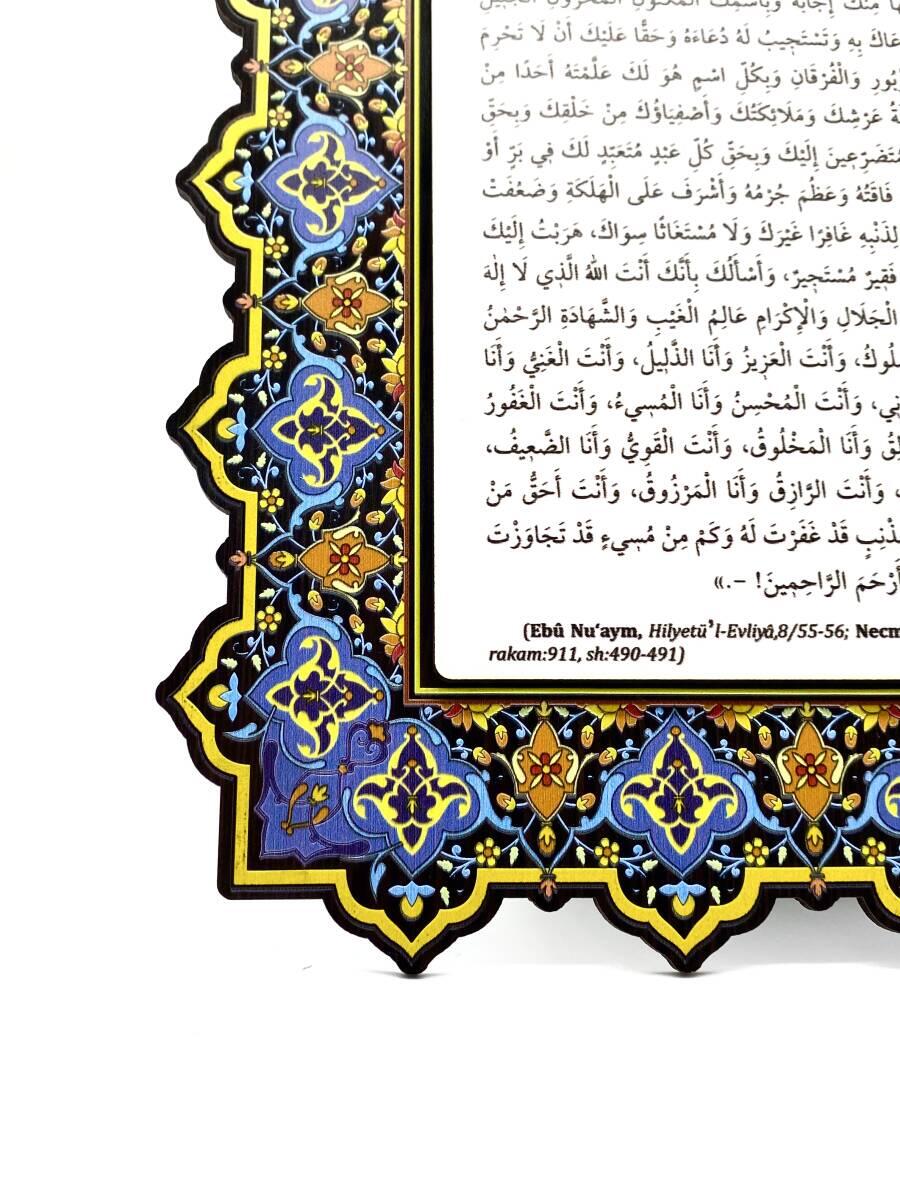 مِنْكَ إِجَابَةً وَبِاسْمِكَ الْمَكْنُونِ الْمَخْزُونِ الْجَلِيلِ
وَتَسْتَجِيبُ لَهُ دُعَاءَهُ وَحَقًّا عَلَيْكَ أَنْ لَا تَحْرِمَ
وَالْفُرْقَانِ وَبِكُلِّ اسْمٍ هُوَ لَكَ عَلَّمْتَهُ أَحَدًا مِنْ
عَرْشِكَ وَمَلَائِكَتُكَ وَأَصْفِيَاؤُكَ مِنْ خَلْقِكَ وَبِحَقِّ
إِلَيْكَ وَبِحَقِّ كُلِّ عَبْدٍ مُتَعَبِّدٍ لَكَ فِي بَرٍّ أَوْ
فَاقَتُهُ وَعَظُمَ جُرْمُهُ وَأَشْرَفَ عَلَى الْهَلَكَةِ وَضَعُفَتْ
لِذَنْبِهِ غَافِرًا غَيْرَكَ وَلَا مُسْتَغَاثًا سِوَاكَ، هَرَبْتُ إِلَيْكَ
فَقِيرٌ مُسْتَجِيرٌ، وَأَسْأَلُكَ بِأَنَّكَ أَنْتَ اللهُ الَّذِي لَا إِلٰهَ
الْجَلَالِ وَالْإِكْرَامِ عَالِمُ الْغَيْبِ وَالشَّهَادَةِ الرَّحْمٰنُ
وَأَنْتَ الْعَزِيزُ وَأَنَا الذَّلِيلُ، وَأَنْتَ الْغَنِيُّ وَأَنَا
وَأَنْتَ الْمُحْسِنُ وَأَنَا الْمُسِيءُ، وَأَنْتَ الْغَفُورُ
وَأَنَا الْمَخْلُوقُ، وَأَنْتَ الْقَوِيُّ وَأَنَا الضَّعِيفُ،
وَأَنْتَ الرَّازِقُ وَأَنَا الْمَرْزُوقُ، وَأَنْتَ أَحَقُّ مَنْ
قَدْ غَفَرْتَ لَهُ وَكَمْ مِنْ مُسِيءٍ قَدْ تَجَاوَزْتَ
أَرْحَمَ الرَّاحِمِينَ! -.»
(Ebû Nu‘aym, Hilyetü’l-Evliyâ,8/55-56; Necm
rakam:911, sh:490-491)